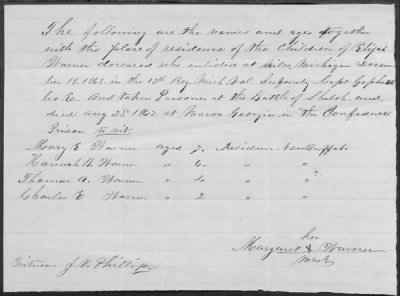 The following are the names and ages together
with the place of residence of the Children of Elijah
Warner deceased who enlisted at Niles Michigan Decem
ber 18, 1861. in the 12th Reg. Mich Vol Infantry Capt
Co. and taken Prisoner at the Battle of Shiloh and
died Aug 23d 1862 at Macon Georgia in the Confederate
Prison to wit
Mary E Warner aged 7. Residence New Buffalo
Hannah Warner " 6 " "
Thomas A. Warner " 4 " "
Charles E Warner " 2 " "
her
Margaret X Warner
mark
Witness J. V. Phillips